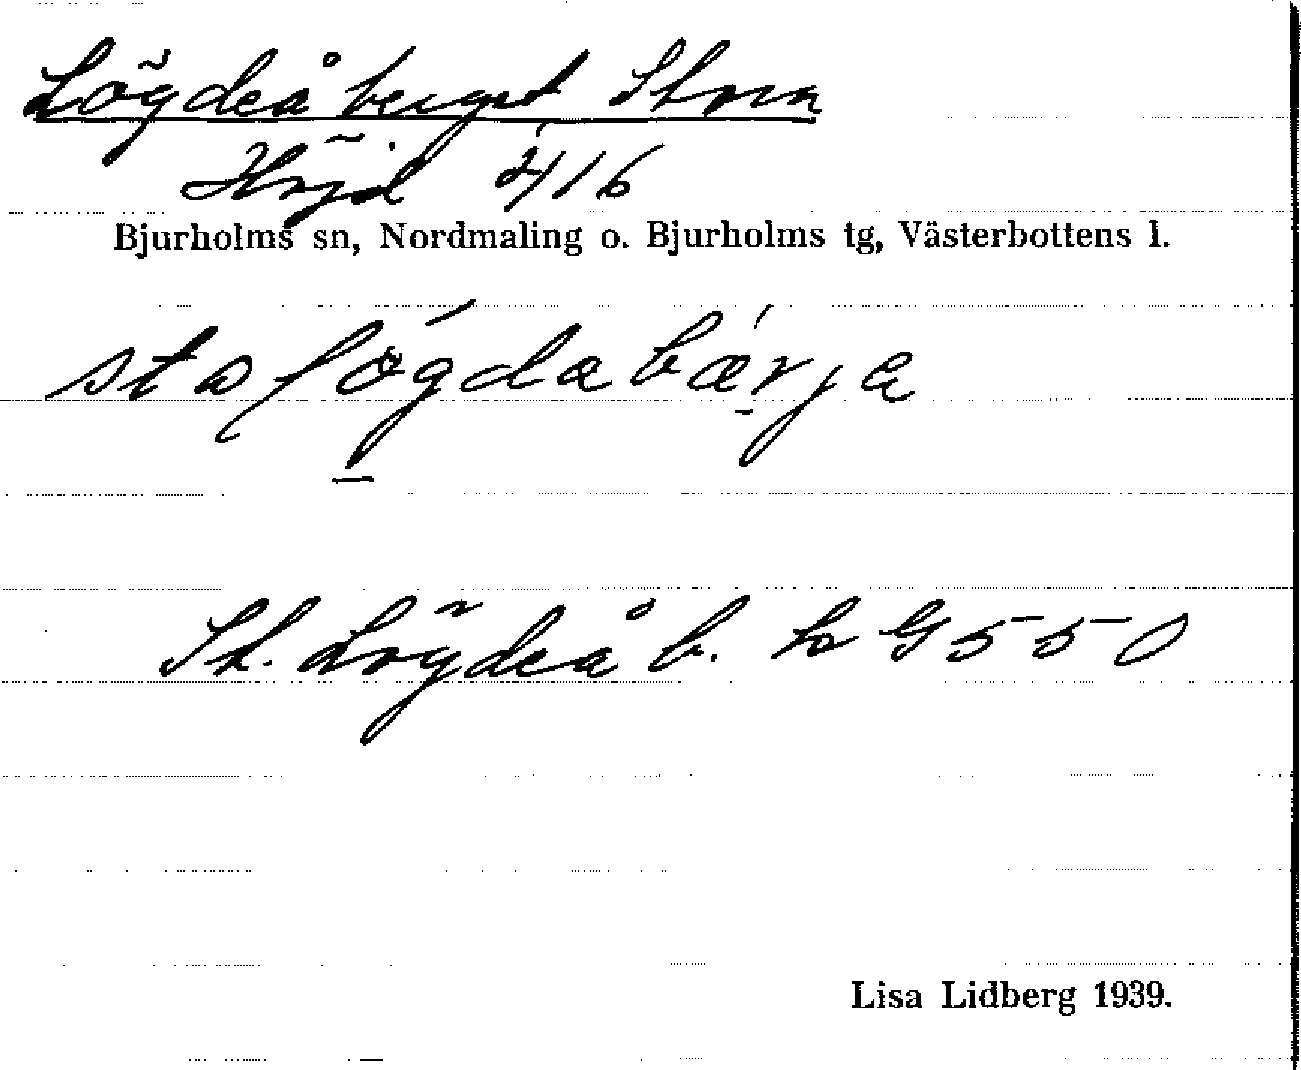 Lögdeåberget Stora
Höjd 416
Bjurholms sn, Nordmaling o. Bjurholms tg, Västerbottens l.
St. Lögdeå b. h G 550
Lisa Lidberg 1939.